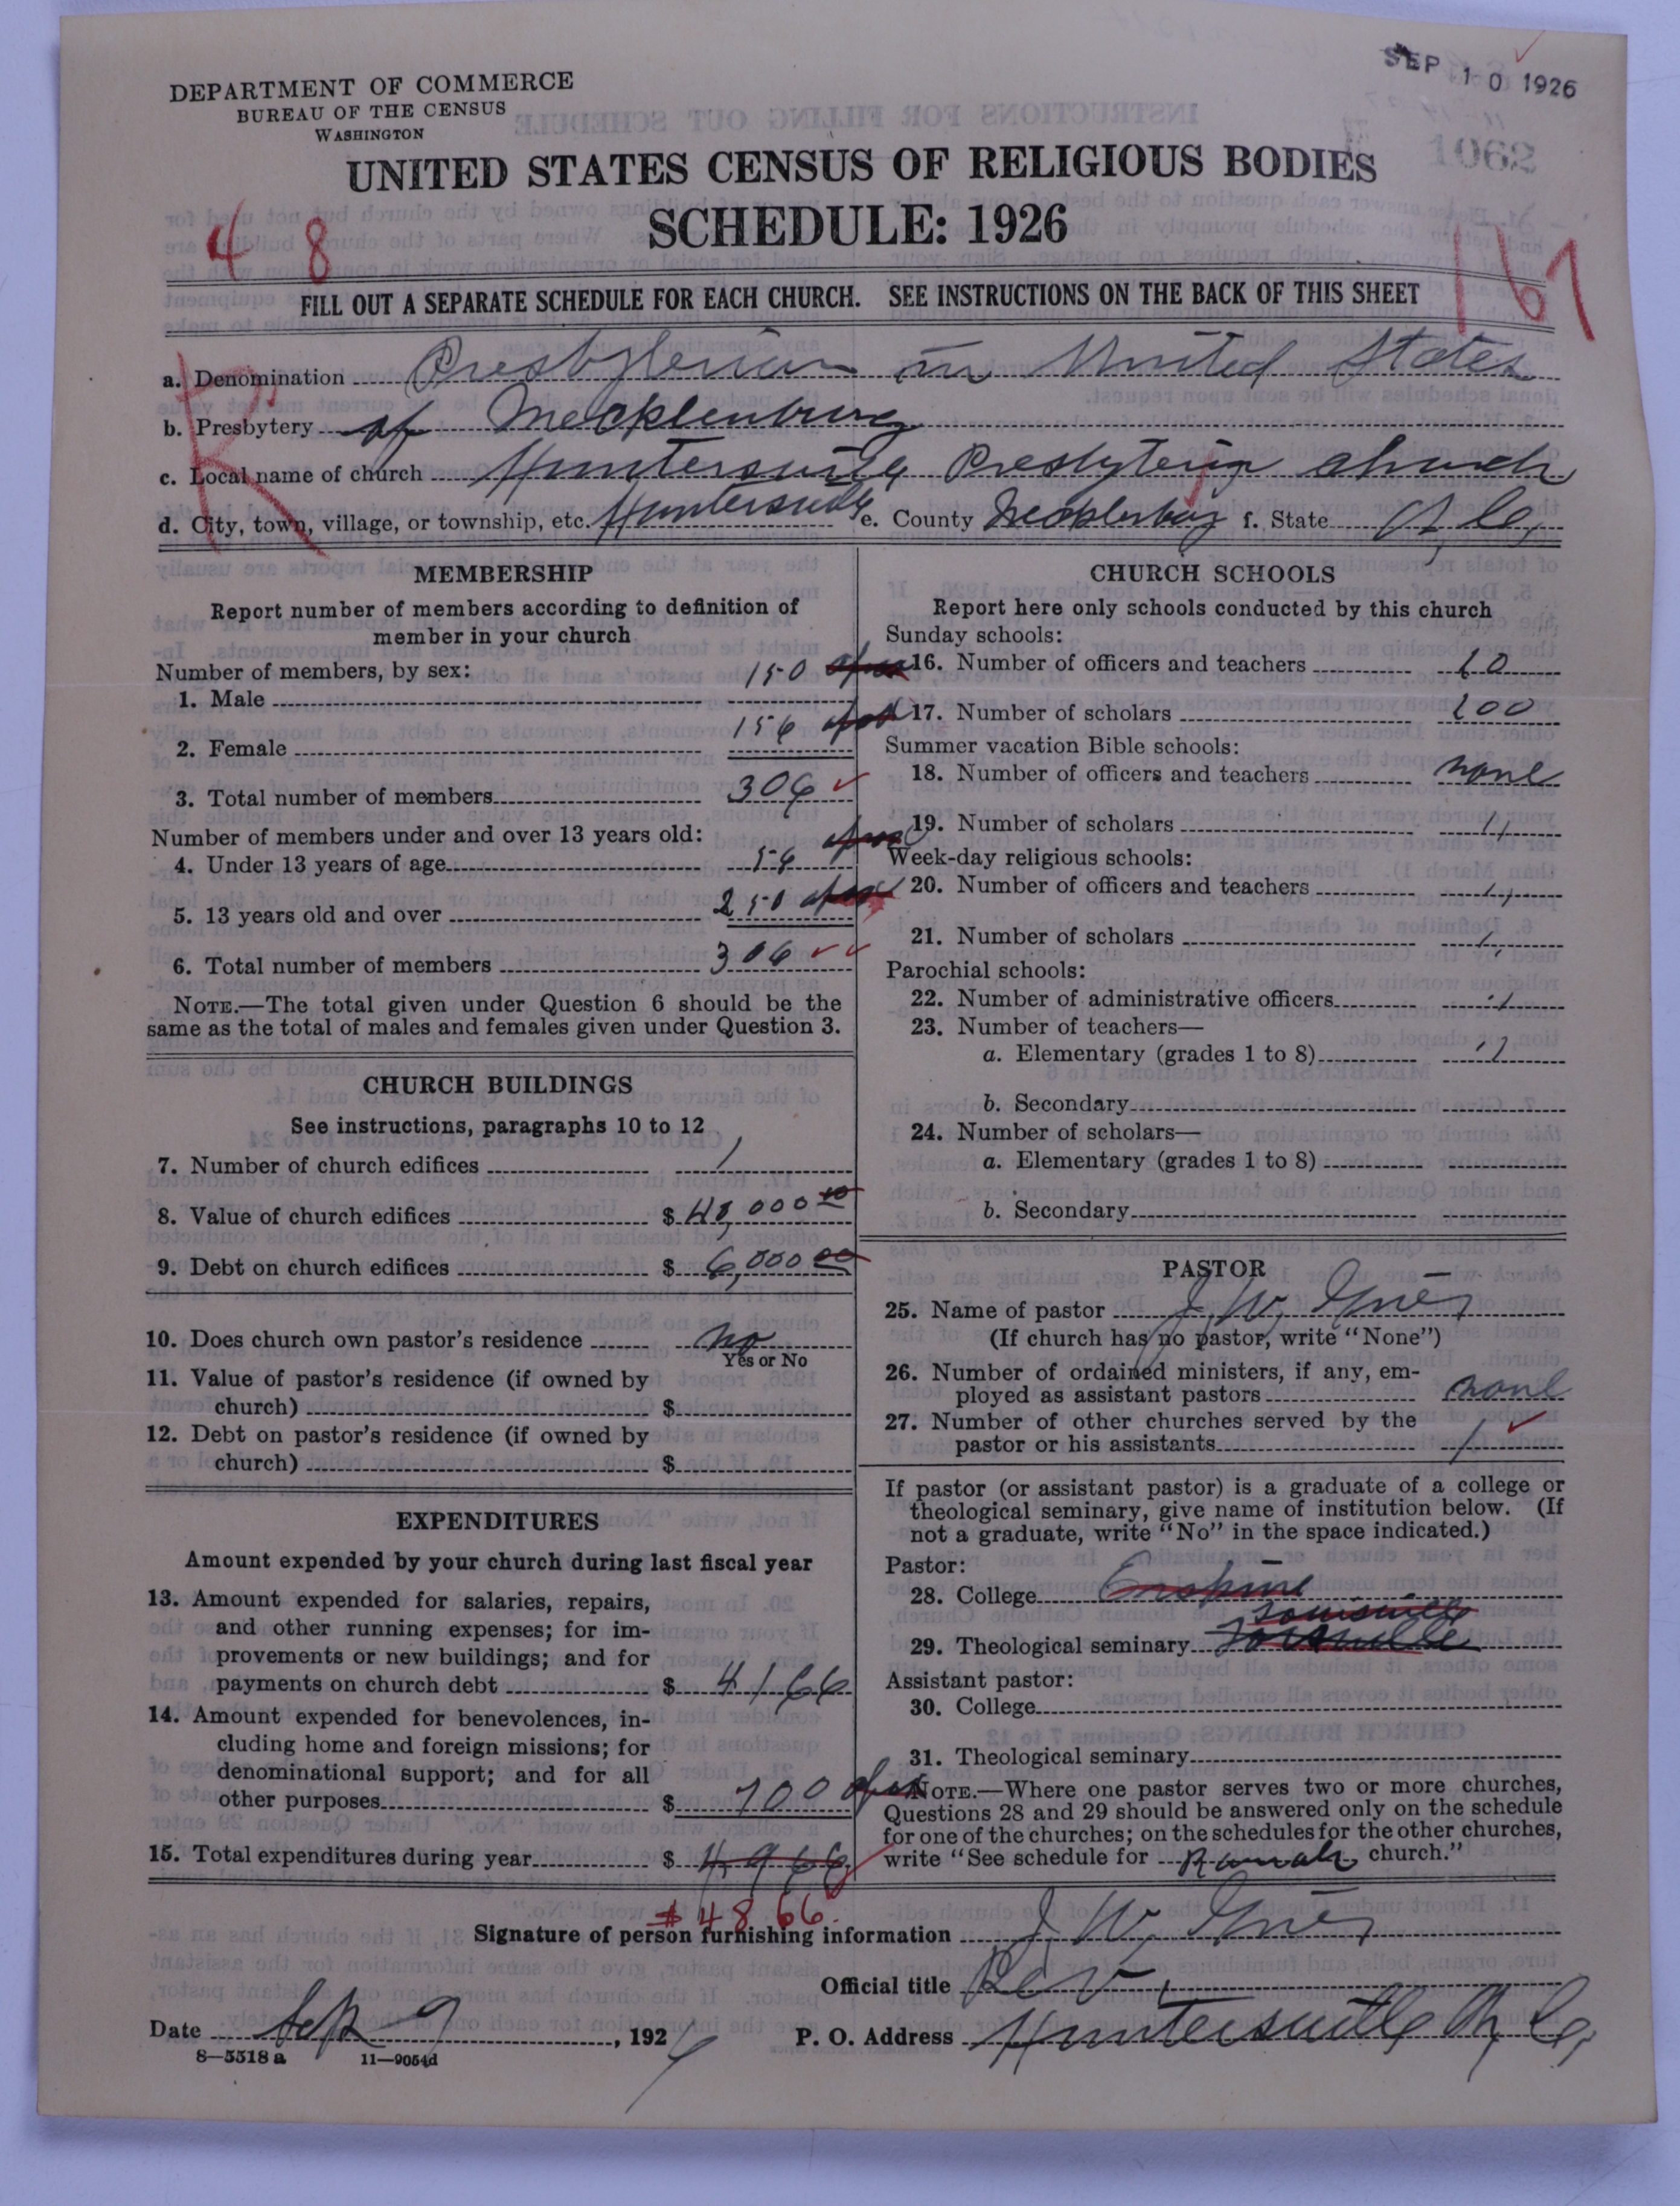 SEP 10 1926
DEPARTMENT OF COMMERCE
BUREAU OF THE CENSUS
WASHINGTON
1062
UNITED STATES CENSUS OF RELIGIOUS BODIES
SCHEDULE: 1926
4 8
FILL OUT A SEPARATE SCHEDULE FOR EACH CHURCH. SEE INSTRUCTIONS ON THE BACK OF THIS SHEET
a. Denomination Presbyterian in United States
b. Presbytery of Mecklenburg
c. Local name of church Huntersville Presbyterian church
d. City, town, village, or township, etc. Huntersville e. County Mecklenburg f. State N. C.
R
MEMBERSHIP
Report number of members according to definition of
member in your church
Number of members, by sex:
1. Male 150
2. Female 156
3. Total number of members 306
Number of members under and over 13 years old:
4. Under 13 years of age 56
5. 13 years old and over 250
6. Total number of members 306
NOTE.—The total given under Question 6 should be the
same as the total of males and females given under Question 3.
CHURCH BUILDINGS
See instructions, paragraphs 10 to 12
7. Number of church edifices 1
8. Value of church edifices $ 48,000 00
9. Debt on church edifices $ 6,000 00
10. Does church own pastor's residence no
Yes or No
11. Value of pastor's residence (if owned by
church) $
12. Debt on pastor's residence (if owned by
church) $
EXPENDITURES
Amount expended by your church during last fiscal year
13. Amount expended for salaries, repairs,
and other running expenses; for im-
provements or new buildings; and for
payments on church debt $ 4166
14. Amount expended for benevolences, in-
cluding home and foreign missions; for
denominational support; and for all
other purposes $ 700
15. Total expenditures during year $ 4966
$ 4866.
CHURCH SCHOOLS
Report here only schools conducted by this church
Sunday schools:
16. Number of officers and teachers 10
17. Number of scholars 200
Summer vacation Bible schools:
18. Number of officers and teachers none
19. Number of scholars 11
Week-day religious schools:
20. Number of officers and teachers
21. Number of scholars
Parochial schools:
22. Number of administrative officers
23. Number of teachers—
a. Elementary (grades 1 to 8)
b. Secondary
24. Number of scholars—
a. Elementary (grades 1 to 8)
b. Secondary
PASTOR
25. Name of pastor J. W.
(If church has no pastor, write "None")
26. Number of ordained ministers, if any, em-
ployed as assistant pastors none
27. Number of other churches served by the
pastor or his assistants 1
If pastor (or assistant pastor) is a graduate of a college or
theological seminary, give name of institution below. (If
not a graduate, write "No" in the space indicated.)
Pastor:
28. College Erskine
Louisville
29. Theological seminary Louisville
Assistant pastor:
30. College
31. Theological seminary
NOTE.—Where one pastor serves two or more churches,
Questions 28 and 29 should be answered only on the schedule
for one of the churches; on the schedules for the other churches,
write "See schedule for Ramah church."
Signature of person furnishing information J. W.
Official title Rev.
Date Sep 9, 1926 P. O. Address Huntersville N. C.
8—5518 a 11—9054d